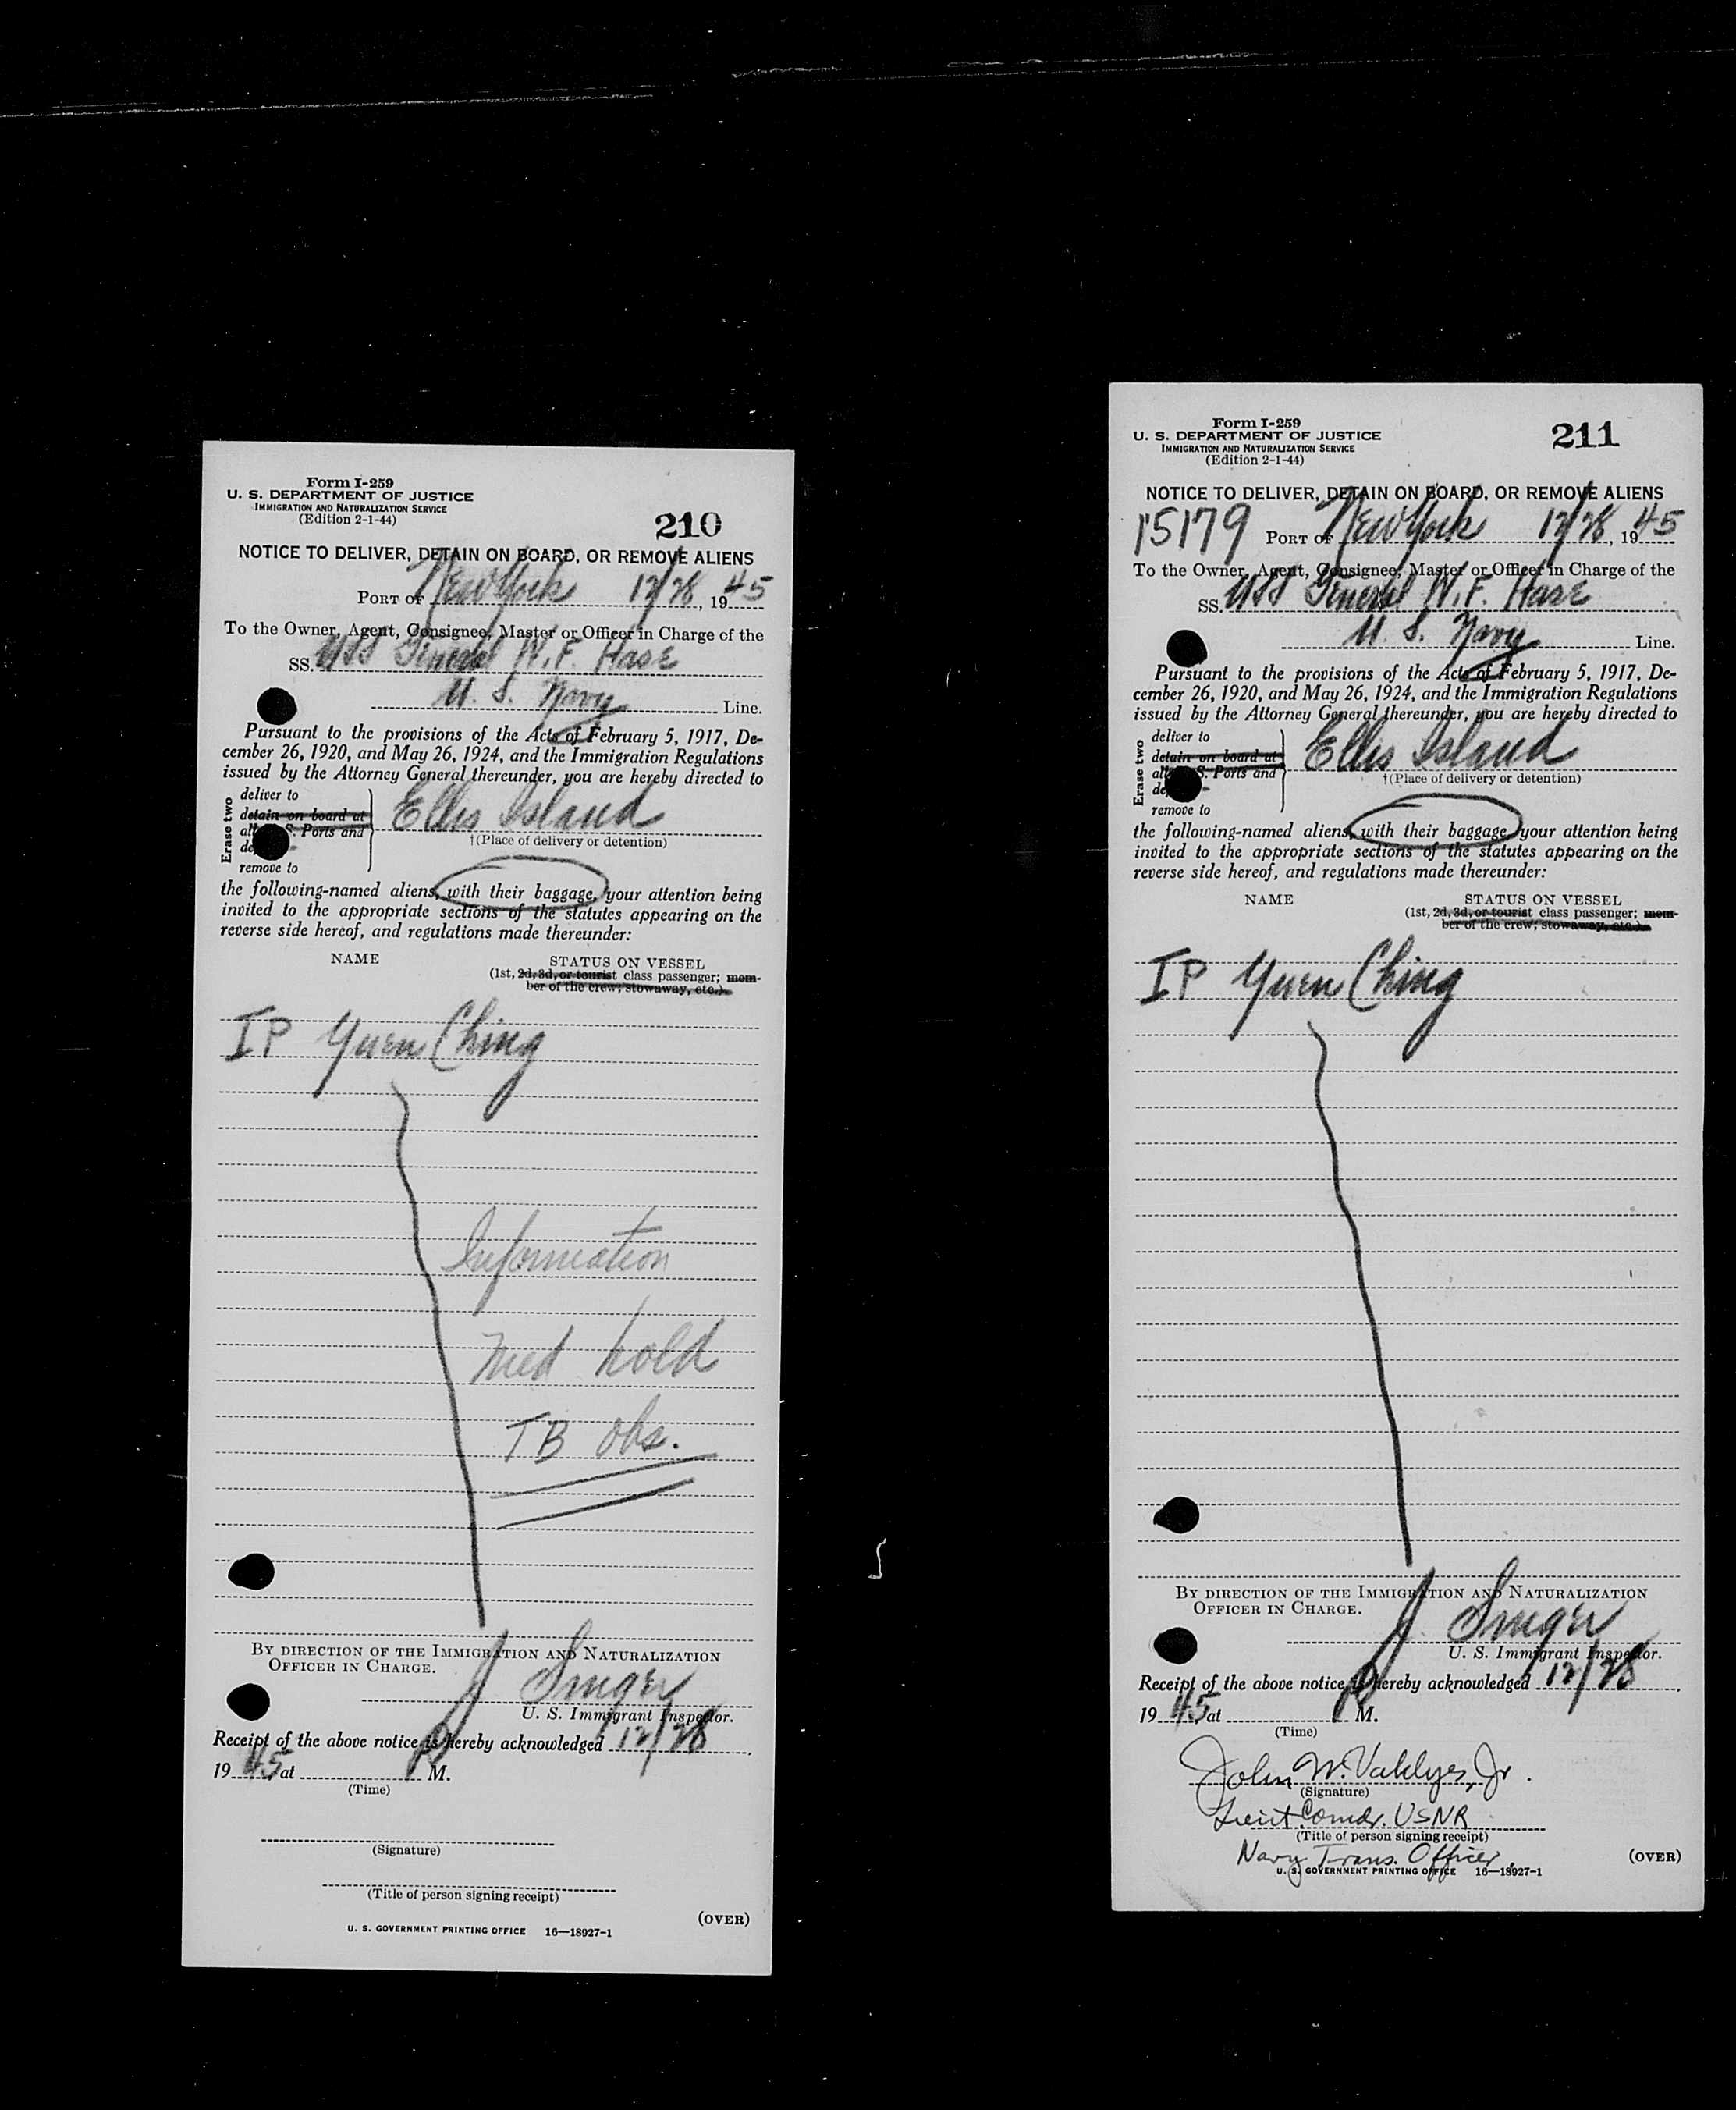 Form I-259
U. S. DEPARTMENT OF JUSTICE
IMMIGRATION AND NATURALIZATION SERVICE
(Edition 2-1-44)
210
NOTICE TO DELIVER, DETAIN ON BOARD, OR REMOVE ALIENS
PORT OF New York 12/28, 1945
To the Owner, Agent, Consignee, Master or Officer in Charge of the
SS. USS General W. F. Hase
U. S. Navy Line.
Pursuant to the provisions of the Acts of February 5, 1917, De-
cember 26, 1920, and May 26, 1924, and the Immigration Regulations
issued by the Attorney General thereunder, you are hereby directed to
Erase two
deliver to
detain on board at
all S. Ports and
de
remove to
Ellis Island
†(Place of delivery or detention)
the following-named aliens, with their baggage, your attention being
invited to the appropriate sections of the statutes appearing on the
reverse side hereof, and regulations made thereunder:
NAME STATUS ON VESSEL
(1st, 2d, 3d, or tourist class passenger; mem-
ber of the crew; stowaway, etc.)
IP Yuen Ching
Information
Med hold
TB obs.
BY DIRECTION OF THE IMMIGRATION AND NATURALIZATION
OFFICER IN CHARGE.
J Singer
U. S. Immigrant Inspector.
Receipt of the above notice is hereby acknowledged 12/28,
1945 at P M.
(Time)
(Signature)
(Title of person signing receipt)
(OVER)
U. S. GOVERNMENT PRINTING OFFICE 16—18927-1
Form I-259
U. S. DEPARTMENT OF JUSTICE
IMMIGRATION AND NATURALIZATION SERVICE
(Edition 2-1-44)
211
NOTICE TO DELIVER, DETAIN ON BOARD, OR REMOVE ALIENS
15179 PORT OF New York 12/28, 1945
To the Owner, Agent, Consignee, Master or Officer in Charge of the
SS. USS General W. F. Hase
U. S. Navy Line.
Pursuant to the provisions of the Acts of February 5, 1917, De-
cember 26, 1920, and May 26, 1924, and the Immigration Regulations
issued by the Attorney General thereunder, you are hereby directed to
Erase two
deliver to
detain on board at
all S. Ports and
de
remove to
Ellis Island
†(Place of delivery or detention)
the following-named aliens, with their baggage, your attention being
invited to the appropriate sections of the statutes appearing on the
reverse side hereof, and regulations made thereunder:
NAME STATUS ON VESSEL
(1st, 2d, 3d, or tourist class passenger; mem-
ber of the crew; stowaway, etc.)
IP Yuen Ching
BY DIRECTION OF THE IMMIGRATION AND NATURALIZATION
OFFICER IN CHARGE.
J Singer
U. S. Immigrant Inspector.
Receipt of the above notice is hereby acknowledged 12/28,
1945 at P M.
(Time)
John W. Jr.
(Signature)
Lieut Comdr. USNR
(Title of person signing receipt)
Navy Trans. Officer.
(OVER)
U. S. GOVERNMENT PRINTING OFFICE 16—18927-1